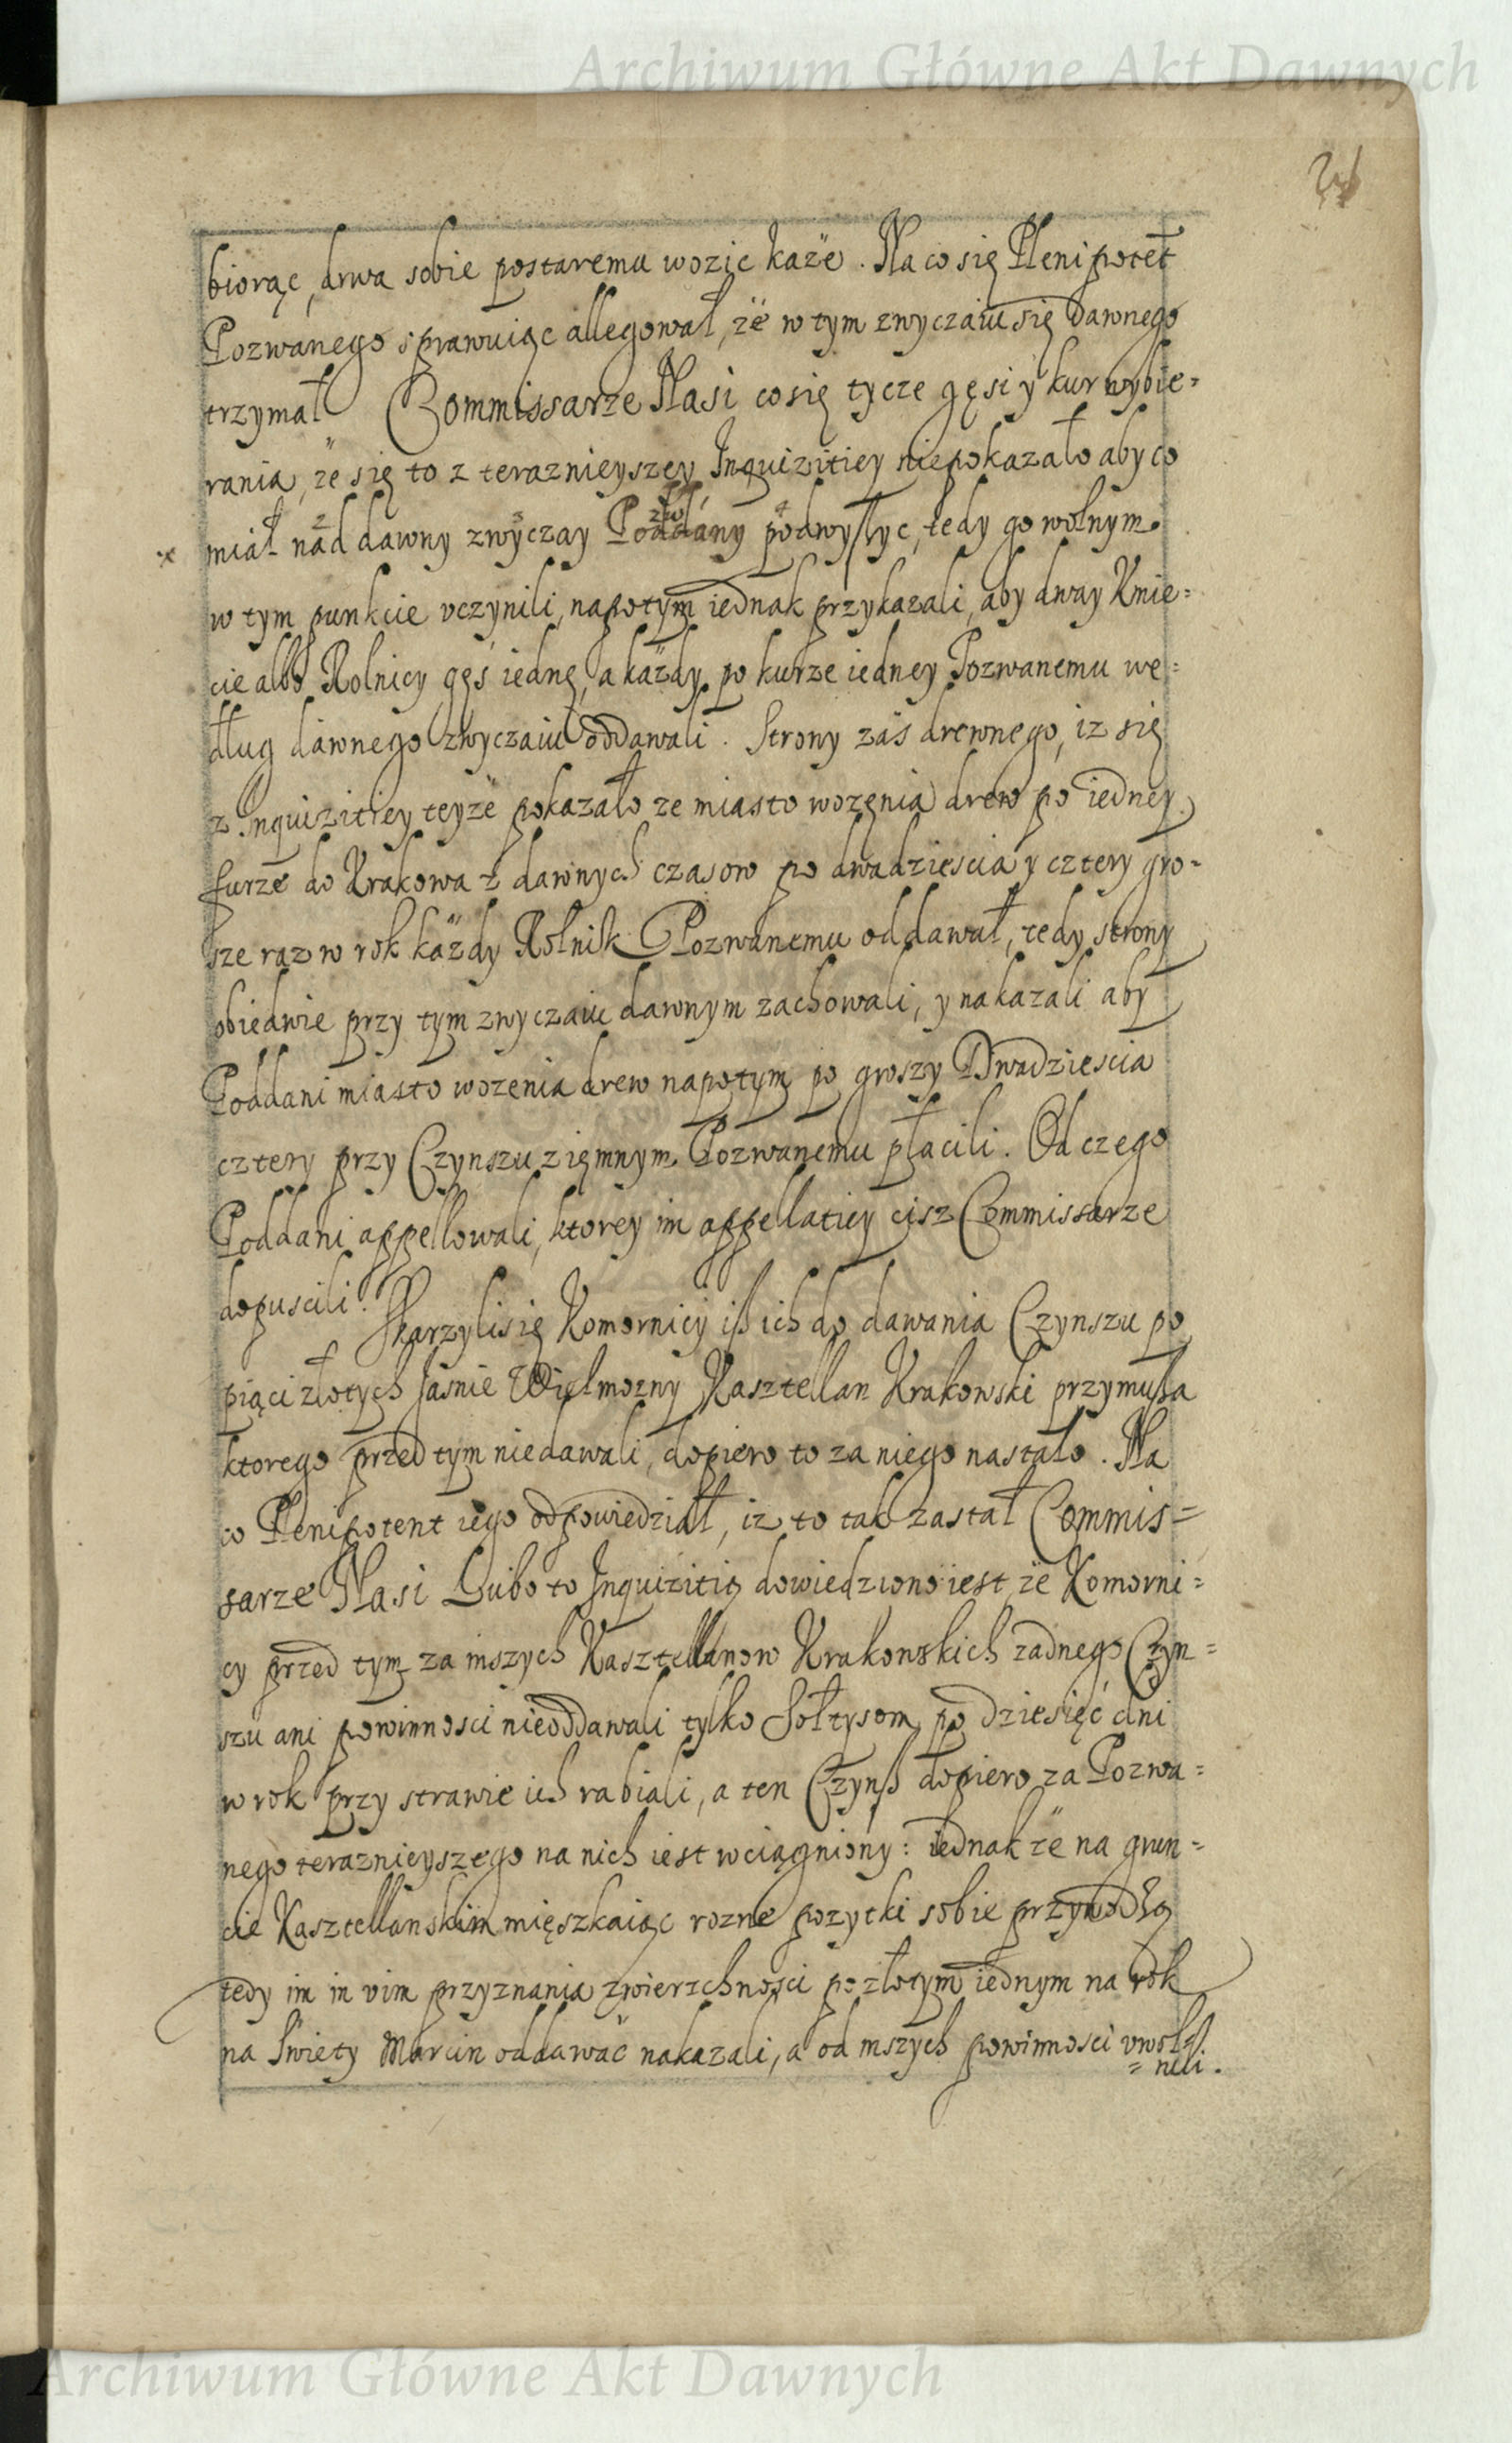 Archiwum Główne Akt Dawnych
biorąc, drwa sobie postaremu wozic każe. Na co się Plenipotet
Pozwanego sprawuiąc allegował, że w tym zwyczaiu się dawnego
trzymał Commissarze Nasi co się tycze gęsi y kur wybie=
rania, że się to z teraznieyszey Inquizitiey niepokazało aby co
miał nad dawny zwyczay podwyszyc, tedy go wolnym
w tym punkcie vczynili, napotym iednak przykazali, aby dway Kmie=
cie albo Rolnicy gęś iednę, a każdy po kurze iedney Pozwanemu we=
dług dawnego zwyczaiu oddawali. Strony zaś drewnego, iz się
z Inquizitiey teyże pokazało ze miasto wozenia drew po iedney
furze do Krakowa z dawnych czasow po dwadziescia y cztery gro=
sze raz w rok każdy Rolnik Pozwanemu oddawał, tedy strony
obiedwie przy tym zwyczaiu dawnym zachowali, y nakazali aby
Poddani miasto wozenia drew napotym po groszy Dwadziescia
cztery przy Czynszu ziemnym Pozwanemu płacili. Od czego
Poddani appellowali, ktorey im appellatiey cisz Commissarze
dopuscili. Skarzyli się Komornicy iß ich do dawania Czynszu po
piąci złotych Jasnie Wielmozny Kasztellan Krakowski przymußa
ktorego przed tym niedawali, dopiero to za niego nastało. Na
co Plenipotent iego odpowiedział, iz to tak zastał Commis=
sarze Nasi Lubo to Inquizitią dowiedziono iest, że Komorni=
cy przed tym za inszych Kasztellanow Krakowskich zadnego Czyn=
szu ani powinnosci nieoddawali tylko Sołtysom po dziesięć dni
w rok przy strawie ich rabiali, a ten Czynß dopiero za Pozwa=
nego teraznieyszego na nich iest wciągniony: iednak że na grun=
cie Kasztellanskim mięszkaiąc rozne pozytki sobie przywodzą
tedy im in vim przyznania zwierzchnosci po złotym iednym na rok
na Swięty Marcin oddawać nakazali, a od inszych powinnosci vwol=
=nili.
Archiwum Główne Akt Dawnych